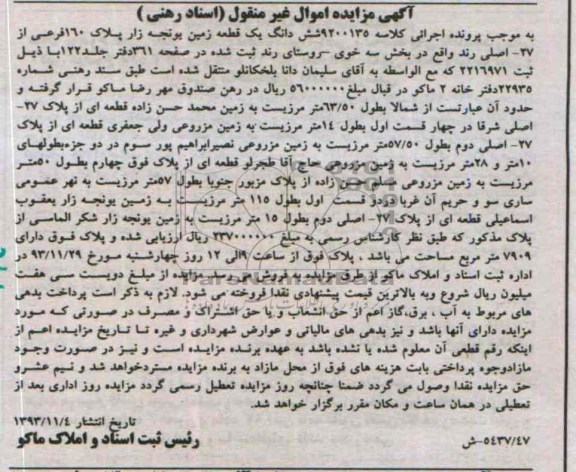 آگهی مزایده اموال غیر منقول (اسناد رهنی)
به موجب پرونده اجرائی کلاسه ۹۲۰۰۱۳۵شش دانگ یک قطعه زمین یونجه زار پلاک ۱۶۰فرعی از
۲۷- اصلی رند واقع در بخش سه خوی -روستای رند ثبت شده در صفحه ۳۶۱دفتر جلد۱۲۲با ذیل
ثبت ۲۲۱۶۹۷۱ که مع الواسطه به آقای سلیمان دانا بلخکانلو منتقل شده است طبق سند رهنی شماره
۲۲۹۳۵دفتر خانه ۲ ماکو در قبال مبلغ۵۶۰۰۰۰۰۰۰ ریال در رهن صندوق مهر رضا ماکو قرار گرفته و
حدود آن عبارتست از شمالا بطول ۶۳/۵۰متر مرزیست به زمین محمد حسن زاده قطعه ای از پلاک ۲۷-
اصلی شرقا در چهار قسمت اول بطول ۱۴متر مرزیست به زمین مزروعی ولی جعفری قطعه ای از پلاک
۲۷- اصلی دوم بطول ۵۷/۵۰متر مرزیست به زمین مزروعی نصیرابراهیم پور سوم در دو جزءبطولهای
۱۰متر و ۲۸متر مرزیست به زمین مزروعی حاج آقا طجرلو قطعه ای از پلاک فوق چهارم بطول ۵۰متر
مرزیست به زمین مزروعی حسن زاده از پلاک مزبور جنوبا بطول ۵۷متر مرزیست به نهر عمومی
ساری سو و حریم آن غربا در دو قسمت اول بطول ۱۱۵ متر مرزیست به زمین یونجه زار یعقوب
اسماعیلی قطعه ای از پلاک ۲۷- اصلی دوم بطول ۱۵ متر مرزیست به زمین یونجه زار شکر الماسی از
پلاک مذکور که طبق نظر کارشناس رسمی به مبلغ ۲۳۷۰۰۰۰۰۰ ریال ارزیابی شده و پلاک فوق دارای
۷۹۰۹ متر مربع مساحت می باشد . پلاک فوق از ساعت ۹الی ۱۲ روز چهارشنبه مورخ ۹۳/۱۱/۲۹ در
اداره ثبت اسناد و املاک ماکو از طریق مزایده به فروش می رسد. مزایده از مبلغ دویست سی هفت
میلیون ریال شروع وبه بالاترین قیمت پیشنهادی نقدا فروخته می شود. لازم به ذکر است پرداخت بدهی
های مربوط به آب ، برق،گاز اعم از حق انشعاب و یا حق اشتراک و مصرف در صورتی که مورد
مزایده دارای آنها باشد و نیز بدهی های مالیاتی و عوارض شهرداری و غیره تا تاریخ مزایده اعم از
اینکه رقم قطعی آن معلوم شده یا نشده باشد به عهده برنده مزایده است و نیز در صورت وجود
مازادوجوه پرداختی بابت هزینه های فوق از محل مازاد به برنده مزایده مستردخواهد شد و نیم عشرو
حق مزایده نقدا وصول می گردد ضمنا چنانچه روز مزایده تعطیل رسمی گردد مزایده روز اداری بعد از
تعطیلی در همان ساعت و مکان مقرر برگزار خواهد شد.
تاریخ انتشار ۱۳۹۳/۱۱/۴
۵۴۳۷/۴۷-ش
رئیس ثبت اسناد و املاک ماکو
ParsNamadData